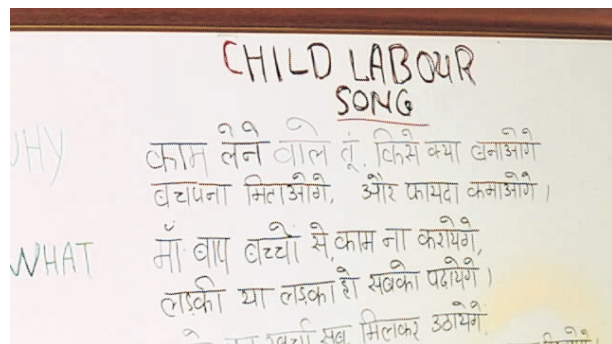 CHILD LABOUR
SONG
WHY
काम लेने वाले तूं, किसे क्या बनाओगे
बचपना मिताओगे, और फायदा कमाओगे।
WHAT
माँ बाप बच्चों से, काम ना करायेगे,
लड़की या लड़का हो सबको पढायेगे।
खर्चा सब मिलकर उठायेगे,